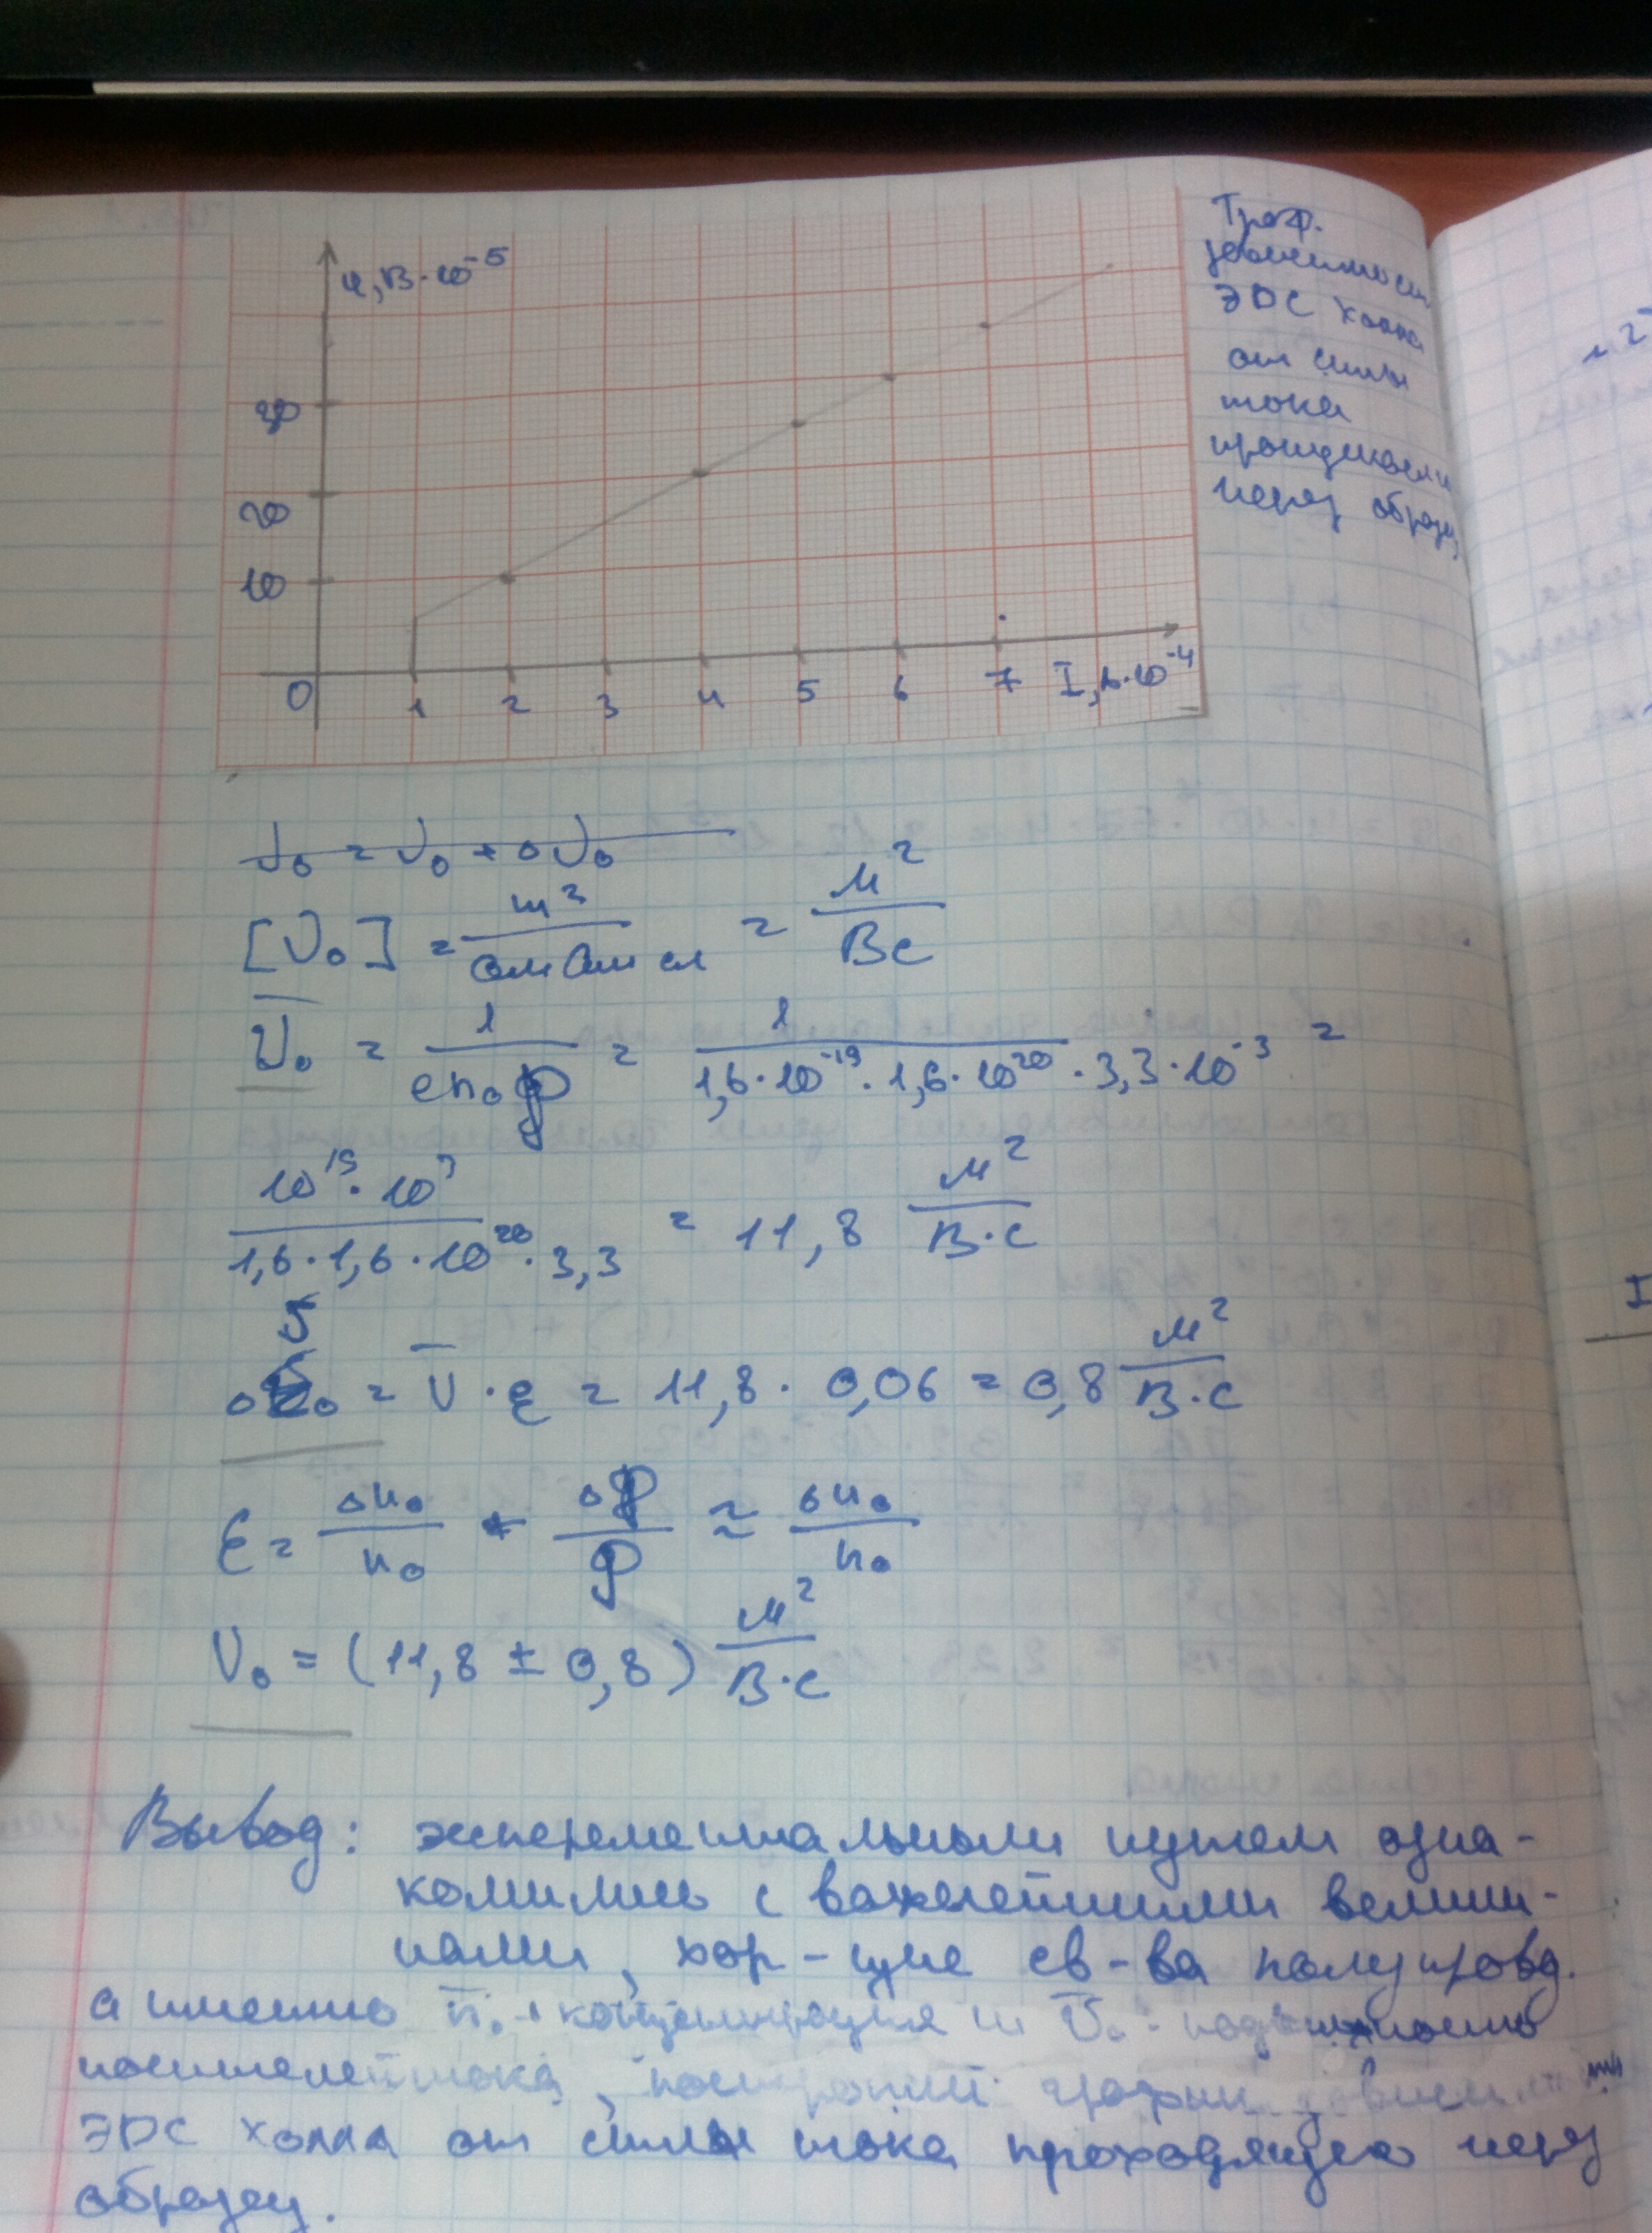 φ, В·10⁻⁵
30
20
10
0 1 2 3 4 5 6 7 I, А·10⁻⁴
Граф.
зависимости
ЭДС Холла
от силы
тока
через образец
U₀ = U₀ + ΔU₀
[U₀] = м³ / Ом Кл = м² / Вс
U̅₀ = 1 / en₀ρ = 1 / 1,6·10⁻¹⁹·1,6·10²⁰·3,3·10⁻³ =
10¹⁹·10³ / 1,6·1,6·10²⁰·3,3 = 11,8 м² / В·с
ΔU₀ = U̅·ε = 11,8·0,06 = 0,8 м² / В·с
ε = Δn₀ / n₀ + Δρ / ρ ≈ Δn₀ / n₀
U₀ = (11,8 ± 0,8) м² / В·с
Вывод: эксперементальным путем озна-
комились с важнейшими величи-
нами, хар-щие св-ва полупровод.
а именно n̅₀ - концентрация и U̅₀ - подвижность
носителей тока, построили график зависим
ЭДС Холла от силы тока проходящего через
образец.